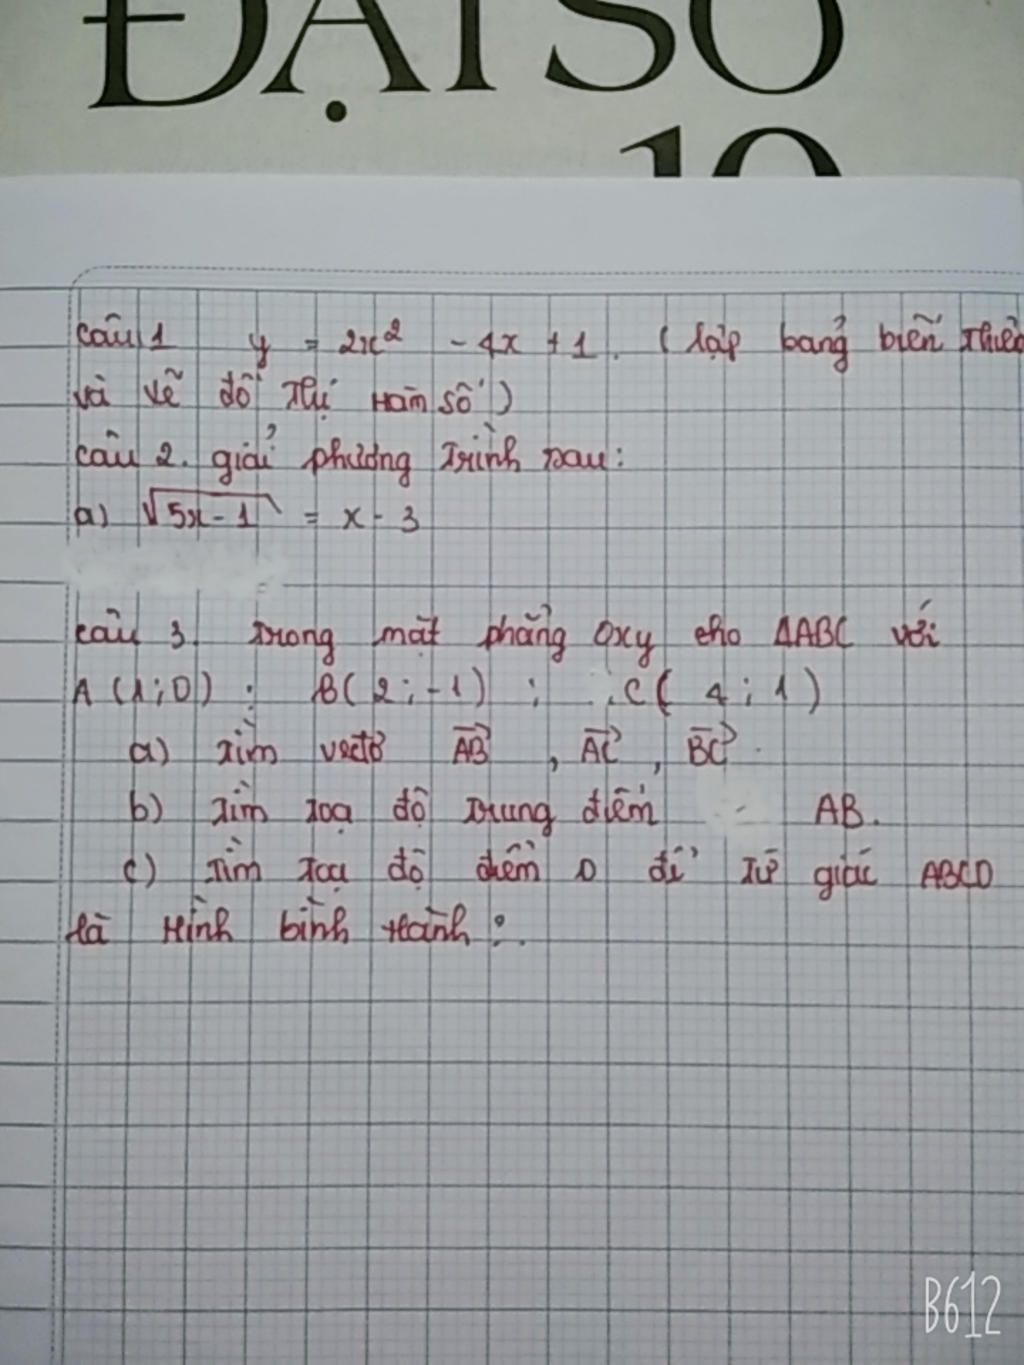 ĐẠI SỐ
10
Câu 1 y = 2x² - 4x + 1. (lập bảng biến thiên
và vẽ đồ thị hàm số)
Câu 2. giải phương trình sau:
a) √5x - 1 = x - 3
Câu 3. Trong mặt phẳng Oxy cho ΔABC với
A (1; 0) ; B( 2 ; -1) ; C( 4 ; 1 )
a) Tìm vectơ AB→ , AC→ , BC→.
b) Tìm toạ độ trung điểm AB.
c) Tìm toạ độ điểm D để tứ giác ABCD
là hình bình hành ?.
B612